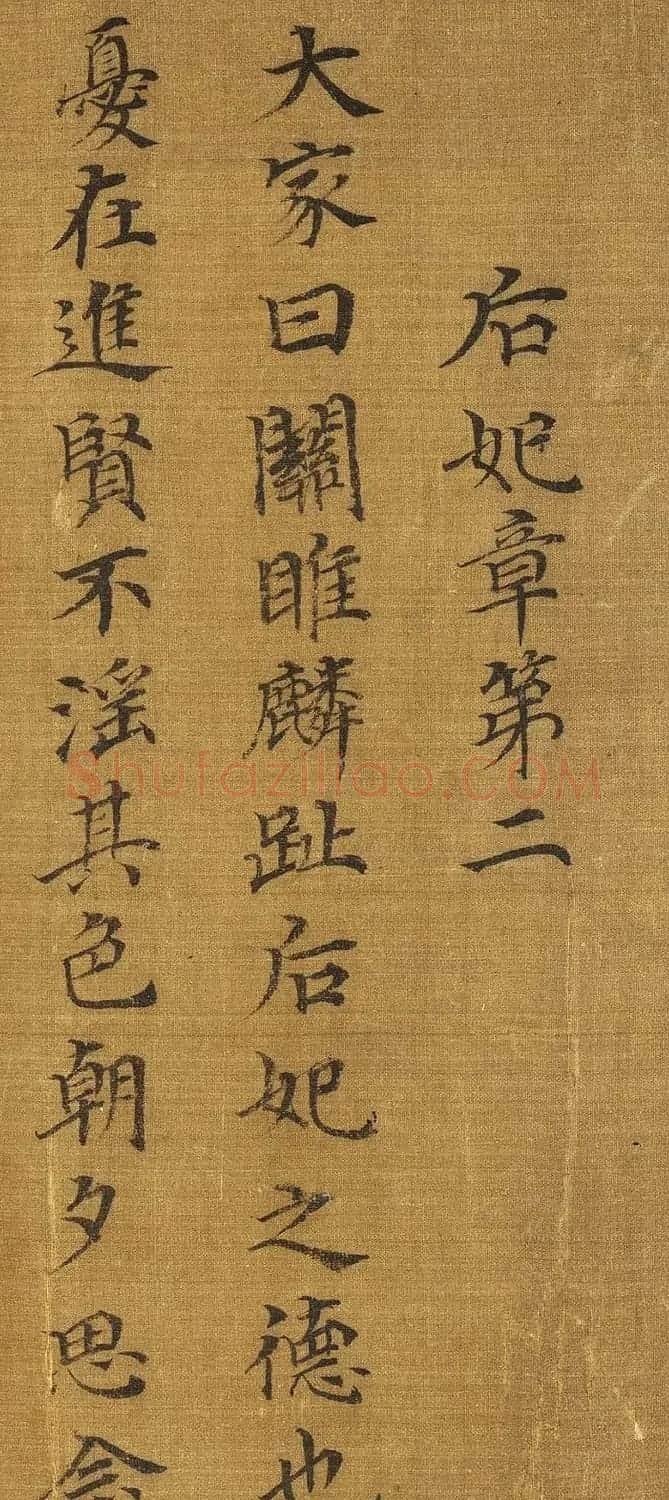 后妃章第二
大家曰關雎麟趾后妃之德也
憂在進賢不淫其色朝夕思念
shufaziliao.COM